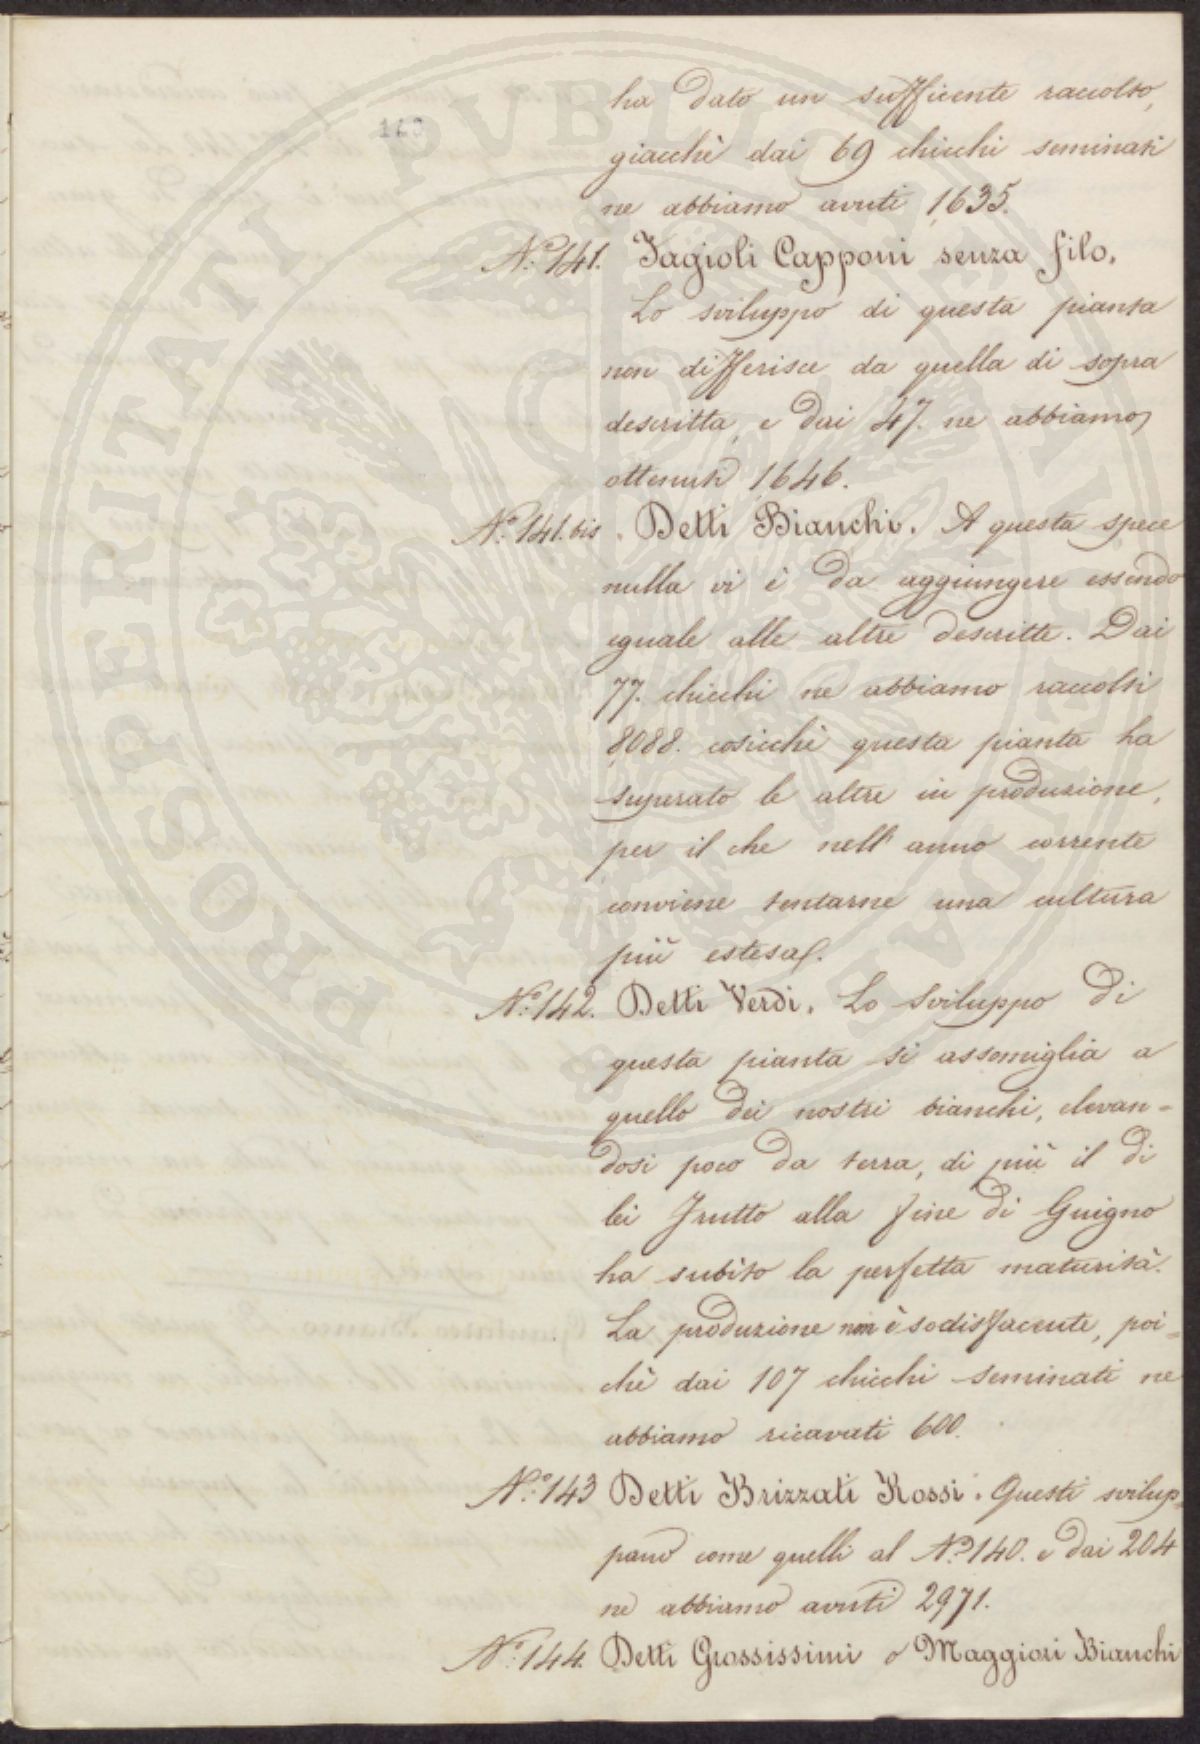 PROSPERITATI PVBLICAE AVGENDAE
140
ha dato un sufficente raccolto,
giacchè dai 69 chicchi seminati
ne abbiamo avuti 1635.
N.° 141. Fagioli Capponi senza filo.
Lo sviluppo di questa pianta
non differisce da quella di sopra
descritta, e dai 47. ne abbiamo
ottenuti 1646.
N.° 141. bis. Detti Bianchi. A questa spece
nulla vi è da aggiungere essendo
eguale alle altre descritte. Dai
77. chicchi ne abbiamo raccolti
8088. cosicchè questa pianta ha
superato le altre in produzione,
per il che nell'anno corrente
conviene tentarne una cultura
più estesa.
N.° 142. Detti Verdi. Lo sviluppo di
questa pianta si assomiglia a
quello dei nostri bianchi, elevan=
dosi poco da terra, di più il di
lei frutto alla fine di Guigno
ha subìto la perfetta maturità.
La produzione non è sodisfacente, poi=
chè dai 107 chicchi seminati ne
abbiamo ricavati 600.
N.° 143 Detti Brizzati Rossi. Questi svilup=
pano come quelli al N.° 140. e dai 204
ne abbiamo avuti 2971.
N.° 144. Detti Grossissimi o Maggiori Bianchi